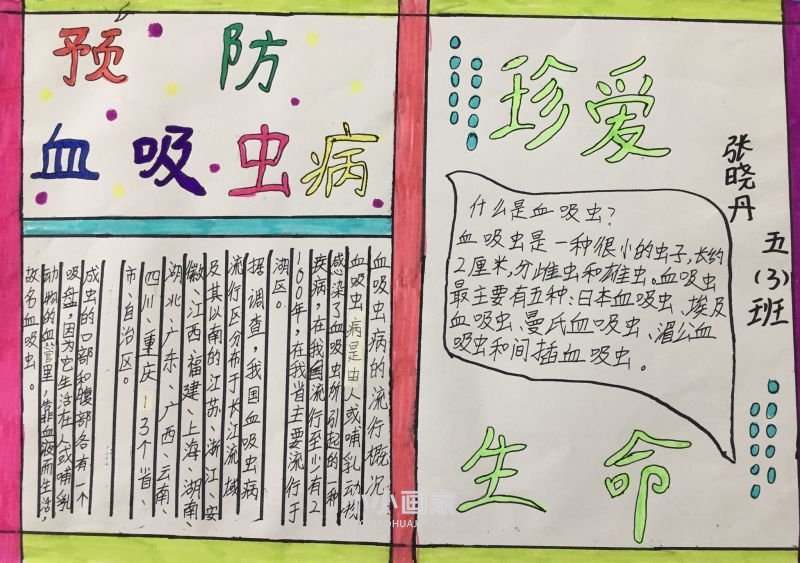 预防
血吸虫病
血吸虫病的流行概况
血吸虫病是由人或哺乳动物
感染了血吸虫所引起的一种
疾病，在我国流行至少有2
100年，在我省主要流行于
湖区。
据调查，我国血吸虫病
流行区分布于长江流域
及其以南的江苏、浙江、安
徽、江西、福建、上海、湖南、
湖北、广东、广西、云南、
四川、重庆13个省、
市、自治区。
成虫的口部和腹部各有一个
吸盘，因为它生活在人或哺乳
动物的血管里，靠血液而生活，
故名血吸虫。
珍爱
张晓丹
五(3)班
什么是血吸虫？
血吸虫是一种很小的虫子，长约
2厘米，分雌虫和雄虫。血吸虫
最主要有五种：日本血吸虫、埃及
血吸虫、曼氏血吸虫、湄公血
吸虫和间插血吸虫。
生命
小小画家